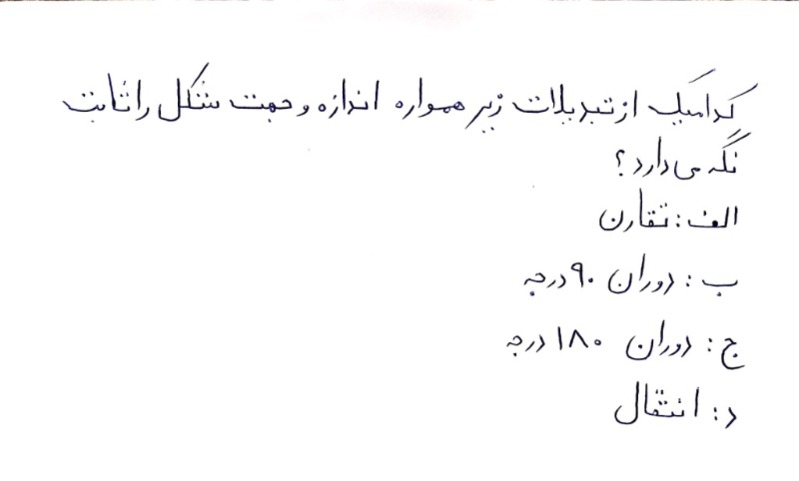 کدامیک از تبدیلات زیر همواره اندازه و جهت شکل را ثابت
نگه می دارد؟
الف: تقارن
ب: دوران ۹۰ درجه
ج: دوران ۱۸۰ درجه
د: انتقال